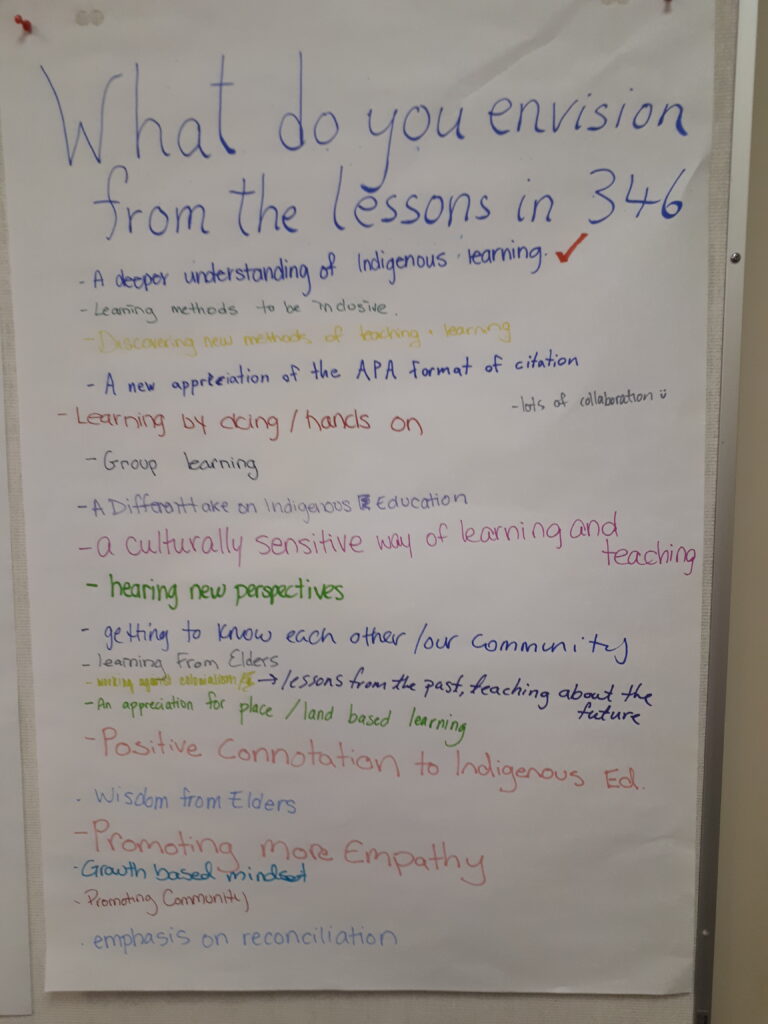 What do you envision
from the lessons in 346
- A deeper understanding of Indigenous learning. ✓
- Learning methods to be inclusive.
- Discovering new methods of teaching + learning
- A new appreciation of the APA format of citation
- lots of collaboration
- Learning by doing / hands on
- Group learning
- A Different take on Indigenous Education
- a culturally sensitive way of learning and
teaching
- hearing new perspectives
- getting to know each other / our community
- learning From Elders
- working against colonialism → lessons from the past, teaching about the
future
- An appreciation for place / land based learning
- Positive Connotation to Indigenous Ed.
. Wisdom from Elders
- Promoting more Empathy
· Growth based mindset
- Promoting Community
. emphasis on reconciliation